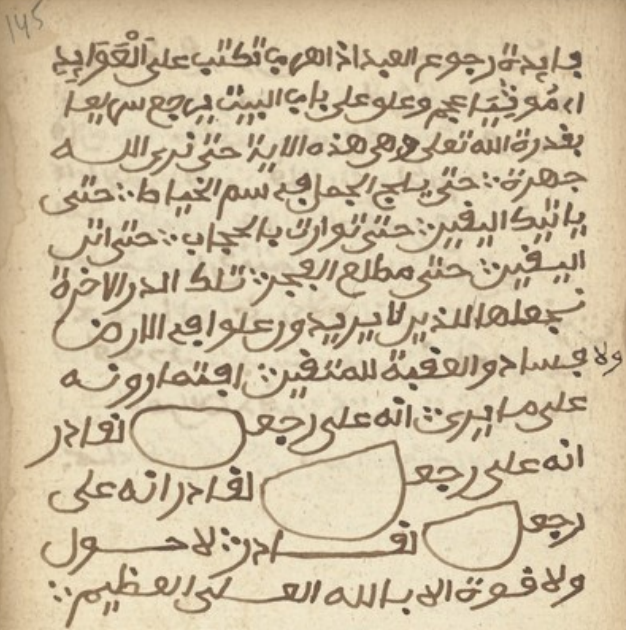 145
فايدة رجوع العبد اذا هرب تكتب على القوايد
وعلو على باب البيت يرجع سريعا
بقدرة الله تعلى وهى هذه الاية حتى نرى الله
جهرة ∴ حتى يلج الجمل فى سم الخياط ∴ حتى
ياتيك اليقين ∴ حتى توارت بالحجاب ∴ حتى اتى
اليقين ∴ حتى مطلع الفجر ∴ تلك الدر الاخرة
نجعلها للذين لا يريدون علوا فى الارض
ولا فسادو العقبة للمتقين ∴ افتمارونه
على ما يرى ∴ انه على رجعه لقادر
انه على رجعه لقادر انه على
رجعه لقادر ∴ لا حول
ولا قوة الا بالله العلى العظيم ∴